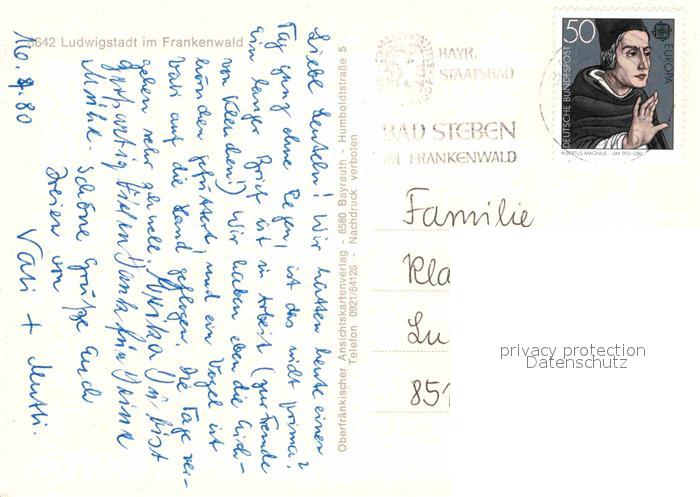 8642 Ludwigstadt im Frankenwald
16. 9. 80
Liebe Leutchen! Wir hatten heute einen
Tag ganz ohne Regen, ist das nicht prima?
Ein langer Brief ist in Arbeit (zur Freude
von Klauchen!) Wir haben eben die Eich-
hörnchen gefüttert, und ein Vogel ist
Vati auf die Hand geflogen. Die Tage ver-
gehen sehr schnell. Du bist
großartig Vielen Dank für Deine
Mühe. Schöne Grüße Euch
Dreien von
Vati + Mutti.
Oberfränkischer Ansichtskartenverlag - 8580 Bayreuth - Humboldtstraße 5
Telefon 0921/64126 - Nachdruck verboten
BAYR.
STAATSBAD
BAD STEBEN
IM FRANKENWALD
50
DEUTSCHE BUNDESPOST
EUROPA
ALBERTUS MAGNUS · UM 1193-1280
Familie
Kla
Lu
851
privacy protection
Datenschutz